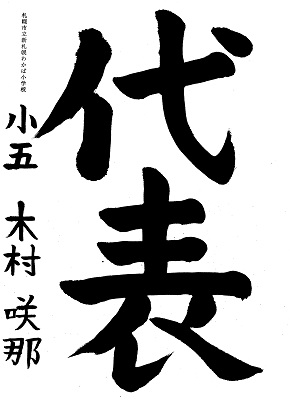 代表
小五 木村 咲那
札幌市立新札幌わかば小学校